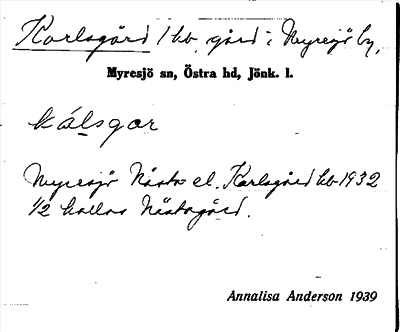 Karlsgård 1 kb, gård i Myresjö by,
Myresjö sn, Östra hd, Jönk. l.
kálsgar
Myresjö Nästa el. Karlsgård kb 1932
1/2 kallas Nästagård.
Annalisa Anderson 1939